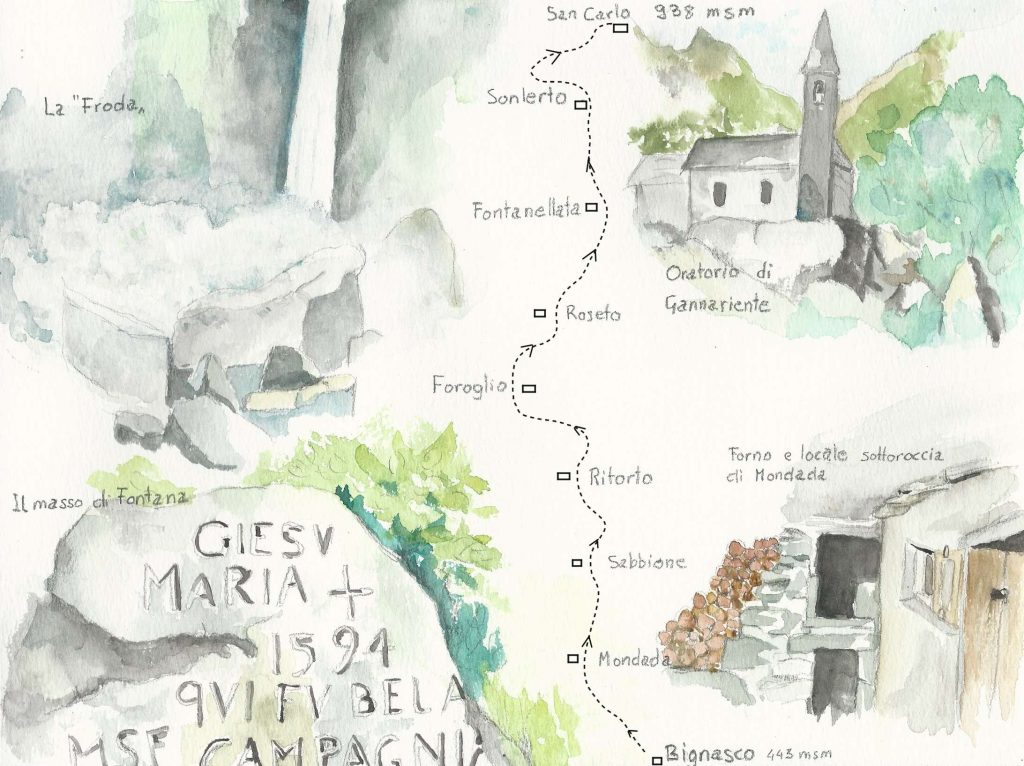 San Carlo 938 msm
La "Froda"
Sonlerto
Fontanellata
Oratorio di
Gannariente
Roseto
Foroglio
Forno e locale sottoroccia
di Mondada
Ritorto
Il masso di Fontana
GIESV
MARIA +
1594
QVI FV BELA
MSE CAMPAGNIA
Sabbione
Mondada
Bignasco 443 msm